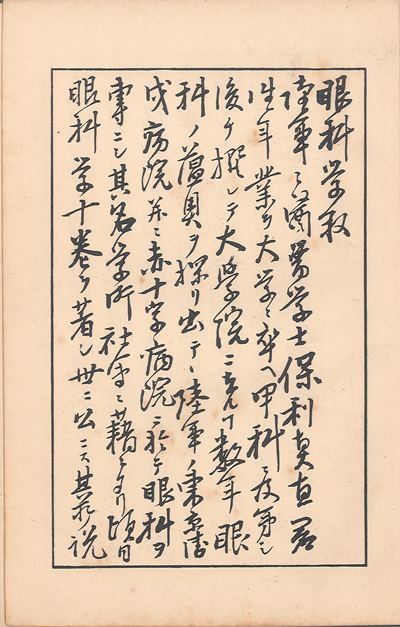 眼科学叙
陸軍医学士保利真直君
往年業ヲ大学ニ卒ヘ甲科ニ及第シ
後チ撰レテ大学院ニ在ルヿ数年眼
科ノ薀奥ヲ探リ出テヽ陸軍ノ東京衛
戍病院并ニ赤十字病院ニ於テ眼科ヲ
専ニシ其名学術社会ニ藉々タリ頃日
眼科学十巻ヲ著シ世ニ公ニス其所説